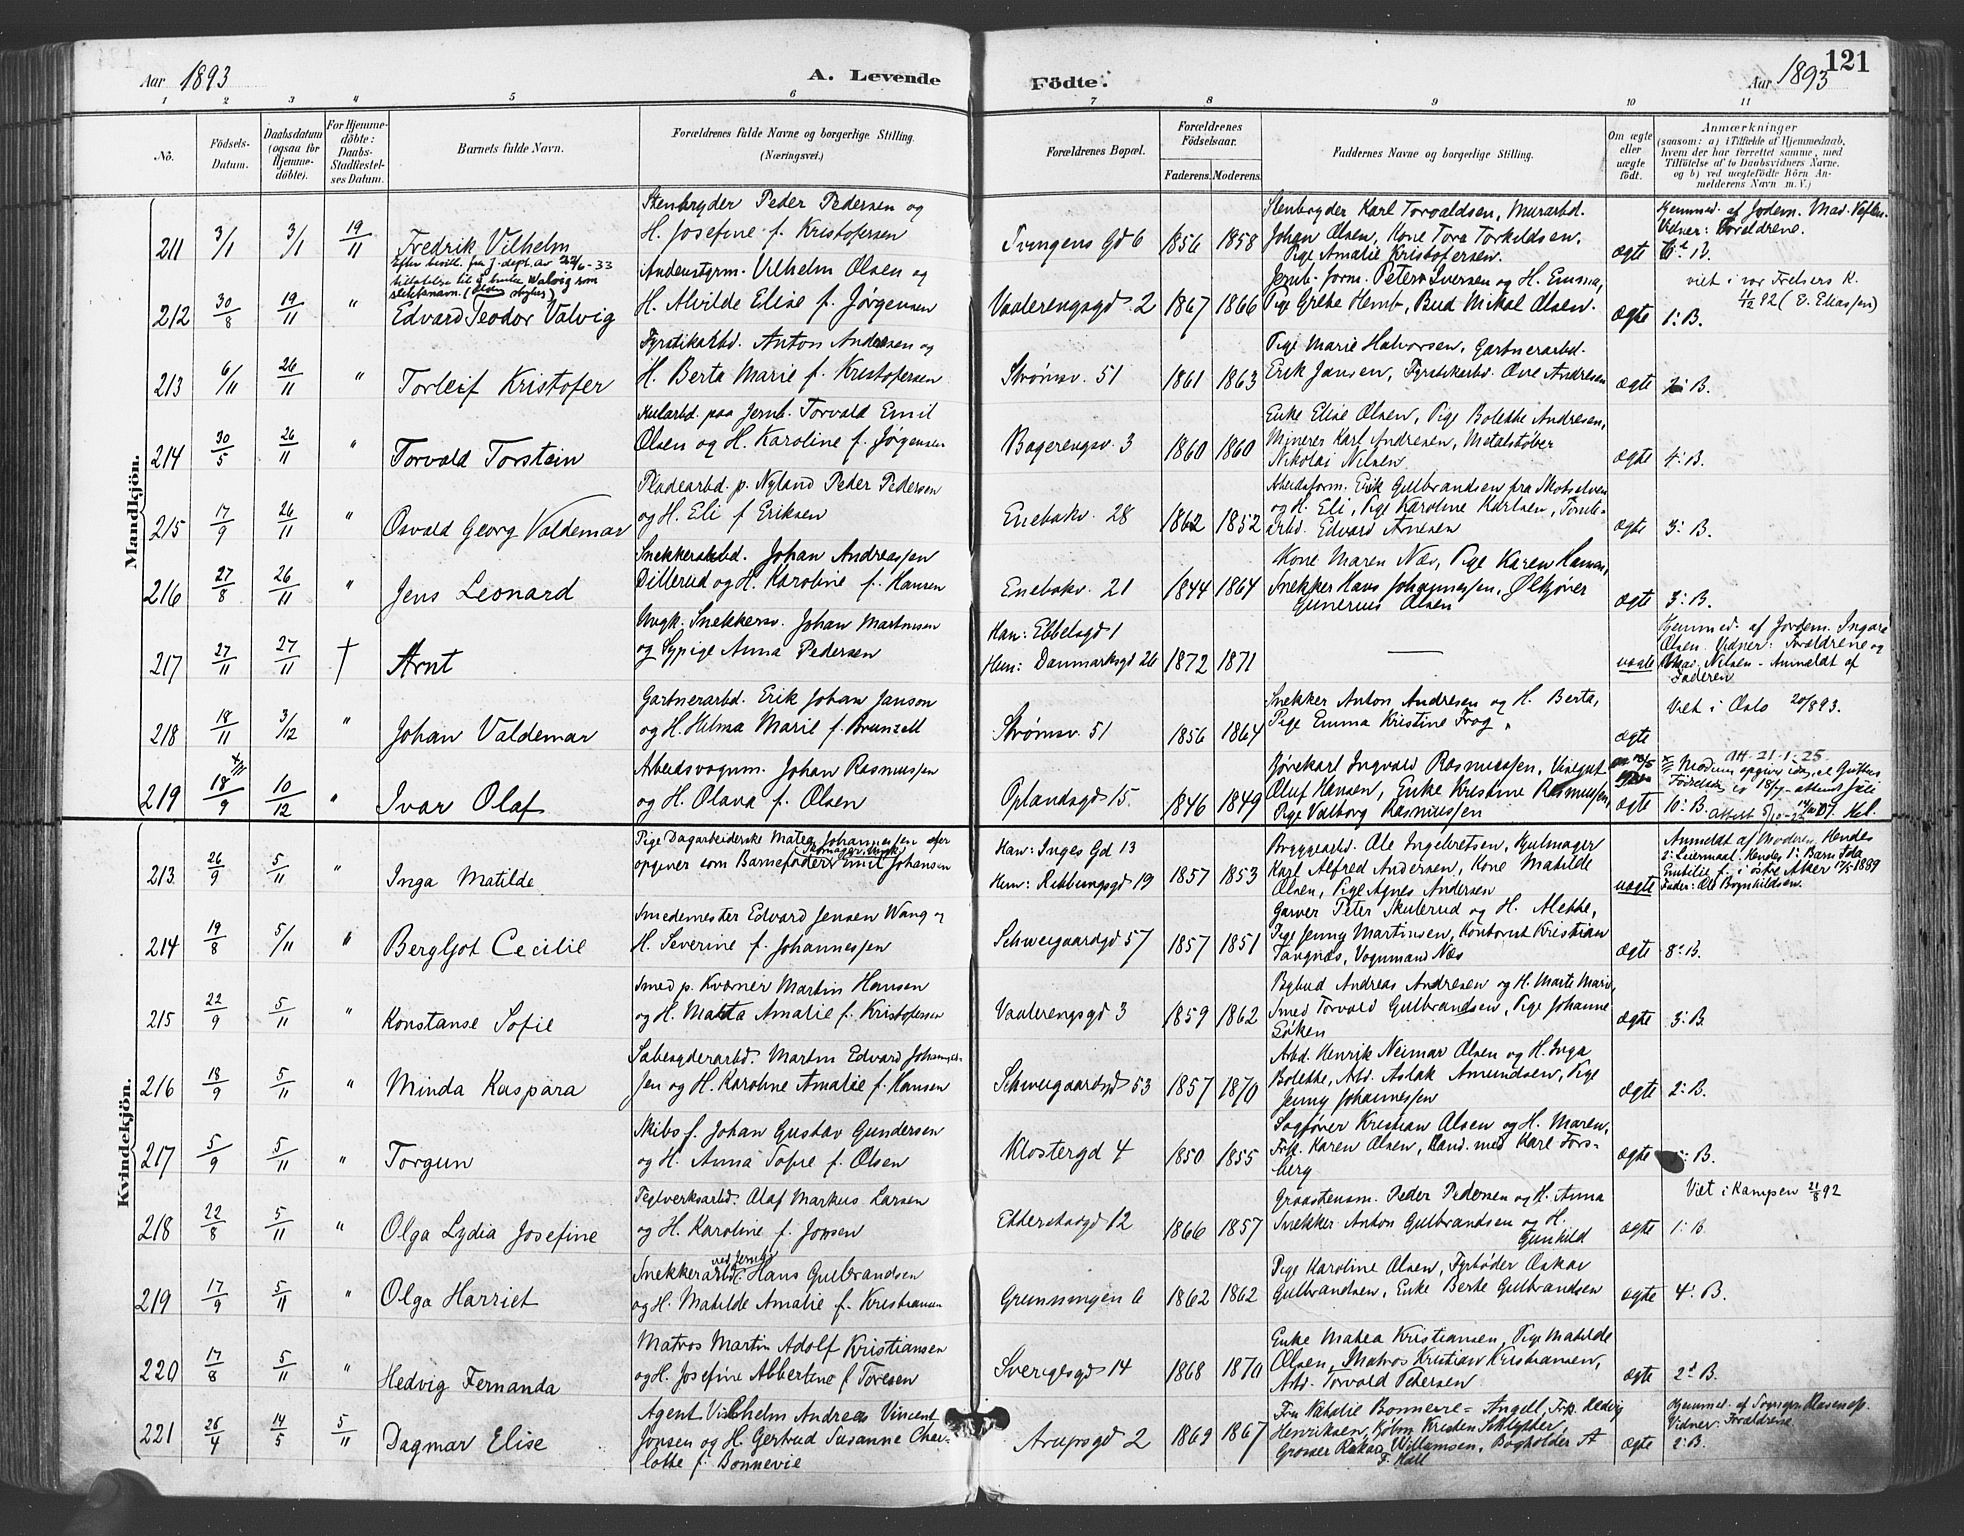 121
Aar 1893 A. Levende Födte. Aar 1893
1 2 3 4 5 6 7 8 9 10 11
No.
Födsels-Datum.
Daabsdatum (ogsaa for Hjemmedöbte).
For Hjemmedöbte: Daabs-Stadfæstelses Datum.
Barnets fulde Navn.
Forældrenes fulde Navne og borgerlige Stilling. (Næringsvei.)
Forældrenes Bopæl.
Forældrenes Födselsaar. Faderens. Moderens.
Faddernes Navne og borgerlige Stilling.
Om ægte eller uægte födt.
Anmærkninger
(saasom: a) i Tilfælde af Hjemmedaab, hvem der har forrettet samme, med Tilföielse af to Daabsvidners Navne, og b) ved uægtefödte Börn Anmelderens Navn m. V.)
Mandkjön.
211 3/1 3/1 19/11 Fredrik Vilhelm
Stenbryder Peder Pedersen og
H. Josefine f. Kristofersen
Tvingens Gd 6 1856 1858
Stenbryder Karl Torvaldsen, Murarbd.
Johan Olsen, Kone Tora Torkildsen,
Pige Amalie Kristofersen.
ægte
Hjemmed. af Jordem. Mad.
Vidner: Forældrene.
Efter bevill. fra J. dept. av 22/6-33
tillatelse til å bruke Walvig som
slektsnavn.
212 30/8 19/11 " Edvard Teodor Valvig
Vilhelm Olsen og
H. Alvilde Elise f. Jørgensen
Vaalerengsgd 2 1867 1866
Jernb. form. Peter Iversen og H. Emma,
Pige Grethe Hemb, Bud Mikal Olsen.
ægte 1. B.
viet i vor Frelsers K.
92 (E. Eliassen)
213 6/11 26/11 " Torleif Kristofer
Fyrstikarbd. Anton Andresen og
H. Berta Marie f. Kristofersen
Strømsv. 51 1861 1863
Pige Marie Halvorsen, Gartnerarbd.
Erik Jansen, Fyrstikarbd. Ove Andresen
ægte 2. B.
214 30/5 26/11 " Torvald Torstein
Kularbd. paa Jernb. Torvald Emil
Olsen og H. Karoline f. Jørgensen
Bagerengsv. 3 1860 1860
Enke Elise Olsen, Pige Bolette Andresen,
Minerer Karl Andresen, Metalstøber
Nikolai Nilsen.
ægte 4. B.
215 17/9 26/11 " Osvald Georg Valdemar
Pladearbd. p. Nyland Peder Pedersen
og H. Eli f Eriksen
Enebakv. 28 1862 1852
Arbeidsform. Erik Gulbrandsen fra Skotselven
og H. Eli, Pige Karoline Karlsen, Tomte-
arbd. Edvard Arnesen
ægte 3. B.
216 27/8 26/11 " Jens Leonard
Snekkerarbd. Johan Andreassen
Dillerud og H. Karoline f. Hansen
Enebakv. 21 1844 1864
Kone Maren Næs, Pige Karen Hansen,
Snekker Hans Johannessen, Ølkjører
Gunerius Olsen
ægte 3. B.
217 27/11 27/11 † Arnt
Ungk. Snekkersv. Johan Martinsen
og Sypige Anna Pedersen
Han: Ebbelsgd 1
Hun: Danmarksgd 26 1872 1871
—
uægte
Hjemmed. af Jordem. Ingara
Olsen. Vidner: Forældrene og
Nilsen - Anmeldt af
Faderen
218 18/11 3/12 " Johan Valdemar
Gartnerarbd. Erik Johan Janson
og H. Hilma Marie f. Brunzell
Strømsv. 51 1856 1864
Snekker Anton Andresen og H. Berta,
Pige Emma Kristine Frog,
ægte
Viet i Oslo 20/8 93.
219 18/9 10/12 " Ivar Olaf
Arbeidsvognm. Johan Rasmussen
og H. Olava f. Olsen
Oplandsgd 15. 1846 1849
Kjørekarl Ingvald Rasmussen,
Oluf Hansen, Enke Kristine Rasmussen,
Pige Valborg Rasmussen
ægte 10. B.
Att. 21-1-25
Kvindekjön.
213 26/9 5/11 " Inga Matilde
Pige Dagarbeiderske Matea Johannessen
opgiver som Barnefader Emil Johansen
Han: Inges Gd 13
Hun: Rubbungsgd 19 1857 1853
Bryggearbd. Ole Ingebretsen, Hjulmager
Karl Alfred Andersen, Kone Matilde
Olsen, Pige Agnes Andersen
uægte
Anmeldt af Moderen. Hendes
2. Leiermaal. Hendes 1. Barn Ida
i østre Aker 17/5 1889
Fader: Ole Bognhildsen.
214 19/8 5/11 " Bergljot Cecilie
Smedemester Edvard Jensen Wang og
H. Severine f. Johannessen
Schweigaardsgd 57 1857 1851
Garver Peter Skulerud og H. Alette,
Pige Jenny Martinsen, Kontorist Kristian
Tangnæs, Vognmand Næs
ægte 8. B.
215 22/9 5/11 " Konstanse Sofie
Smed p. Kværner Martin Hansen
og H. Matea Amalie f. Kristofersen
Vaalerengsgd 3 1859 1862
Bybud Andreas Andresen og H. Marte Marie,
Smed Torvald Gulbrandsen, Pige Johanne
Søken
ægte 3. B.
216 18/9 5/11 " Minda Kaspara
Sabesyderarbd. Martin Edvard Johannes-
sen og H. Karoline Amalie f. Hansen
Schweigaardsgd 53 1857 1870
Arbd. Henrik Neimar Olsen og H. Inga
Bolette, Arb. Aslak Amundsen, Pige
Jenny Johannessen
ægte 2. B.
217 5/9 5/11 " Torgun
Skibsf. Johan Gustav Gundersen
og H. Anna Sofie f. Olsen
Klostergd 4 1850 1855
Sagfører Kristian Olsen og H. Maren,
Frk. Karen Olsen, Cand. med Karl Fors-
berg
ægte B.
218 22/8 5/11 " Olga Lydia Josefine
Teglverksarbd. Olaf Markus Larsen
og H. Karoline f. Jonsen
Etterstadgd 12 1866 1857
Graastensm. Peder Pedersen og H. Anna
Snekker Anton Gulbrandsen og H.
Gunhild
ægte 1. B.
Viet i Kampen 21/8 92
219 17/9 5/11 " Olga Harriet
Snekkerarbd. ved Jernb. Hans Gulbrandsen
og H. Matilde Amalie f. Kristiansen
Grønningen 6 1862 1862
Pige Karoline Olsen, Fyrbøder Oskar
Gulbrandsen, Enke Berte Gulbrandsen
ægte 4. B.
220 17/8 5/11 " Hedvig Fernanda
Matros Martin Adolf Kristiansen
og H. Josefine Albertine f Toresen
Sverigesgd 14 1868 1870
Enke Matea Kristiansen, Pige Matilde
Olsen, Matros Kristian Kristiansen,
Arbd. Torvald Petersen
ægte 2. B.
221 26/4 14/5 5/11 Dagmar Elise
Agent Vilhelm Andreas Vincent
Jonsen og H Gertrud Susanne Char-
lotte f. Bonnevie
Arupsgd 2 1869 1867
Fru Natalie Bonnevie-Angell, Frk. Hedvig
Henriksen, Kjøbm. Kristen Schlytter,
Grosser Willumsen, Bogholder A
F. Hall
ægte
Hjemmed. af
Vidner: Forældrene
2. B.